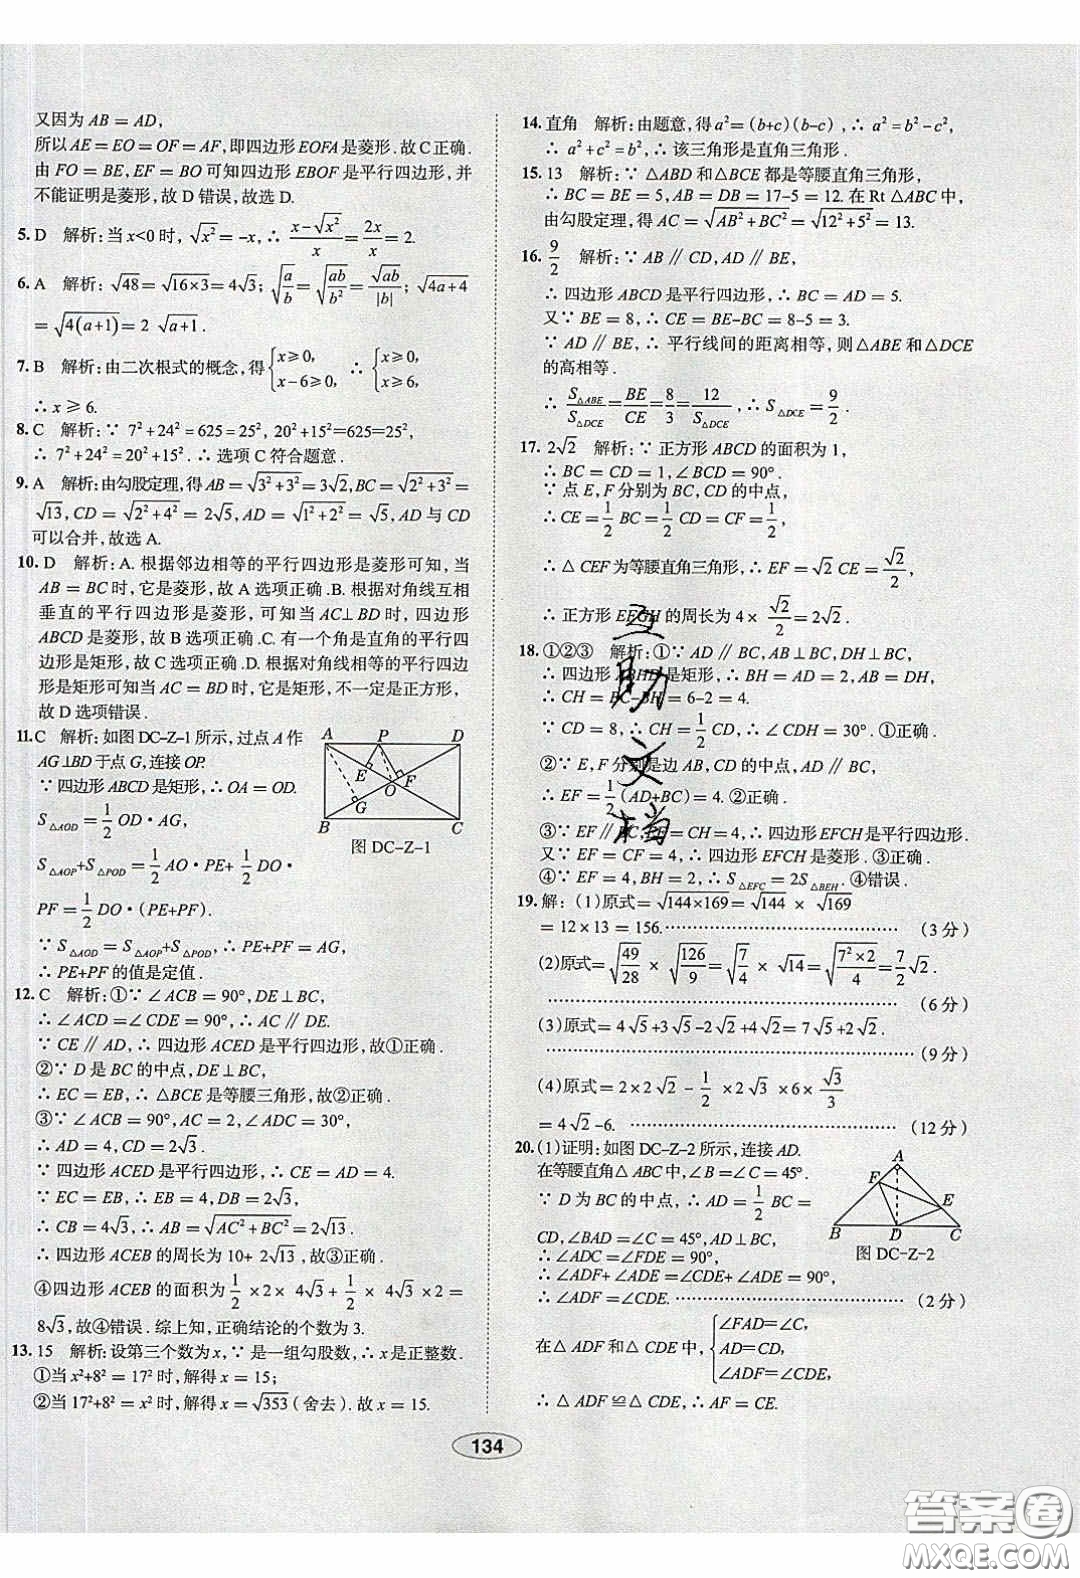 又因为 AB = AD,
所以 AE = EO = OF = AF, 即四边形 EOFA 是菱形. 故 C 正确.
由 FO = BE, EF = BO 可知四边形 EBOF 是平行四边形, 并
不能证明是菱形, 故 D 错误, 故选 D.
5. D 解析: 当 x<0 时, √x² = -x, ∴ (x-√x²)/x = 2x/x = 2.
6. A 解析: √48 = √(16×3) = 4√3; √(a/b) = √(ab/b²) = √ab/|b|; √(4a+4)
= √(4(a+1)) = 2 √(a+1) .
7. B 解析: 由二次根式的概念, 得 {x⩾0, x-6⩾0, ∴ {x⩾0, x⩾6,
∴ x ⩾ 6.
8. C 解析: ∵ 7²+24² = 625 = 25², 20²+15² = 625 = 25²,
∴ 7²+24² = 20²+15² . ∴ 选项 C 符合题意 .
9. A 解析: 由勾股定理, 得 AB = √(3²+3²) = 3√2, BC = √(2²+3²) =
√13, CD = √(2²+4²) = 2√5, AD = √(1²+2²) = √5, AD 与 CD
可以合并, 故选 A.
10. D 解析: A. 根据邻边相等的平行四边形是菱形可知, 当
AB = BC 时, 它是菱形, 故 A 选项正确 .B. 根据对角线互相
垂直的平行四边形是菱形, 可知当 AC⊥BD 时, 四边形
ABCD 是菱形, 故 B 选项正确 .C. 有一个角是直角的平行四
边形是矩形, 故 C 选项正确 .D. 根据对角线相等的平行四边
形是矩形可知当 AC = BD 时, 它是矩形, 不一定是正方形,
故 D 选项错误 .
11. C 解析: 如图 DC-Z-1 所示, 过点 A 作
AG⊥BD 于点 G, 连接 OP.
∵ 四边形 ABCD 是矩形, ∴ OA = OD.
S△AOD = 1/2 OD·AG,
S△AOP+S△POD = 1/2 AO·PE+ 1/2 OD·
PF = 1/2 DO·(PE+PF) .
∵ S△AOD = S△AOP+S△POD, ∴ PE+PF = AG,
∴ PE+PF 的值是定值 .
A P D
E O F
G
B C
图 DC-Z-1
12. C 解析: ①∵ ∠ACB = 90°, DE⊥BC,
∴ ∠ACD = ∠CDE = 90°, ∴ AC∥DE.
∵ CE∥AD, ∴ 四边形 ACED 是平行四边形, 故①正确 .
②∵ D 是 BC 的中点, DE⊥BC,
∴ EC = EB, ∴ △BCE 是等腰三角形, 故②正确 .
③∵ ∠ACB = 90°, AC = 2, ∠ADC = 30°,
∴ AD = 4, CD = 2√3.
∵ 四边形 ACED 是平行四边形, ∴ CE = AD = 4.
∵ EC = EB, ∴ EB = 4, DB = 2√3,
∴ CB = 4√3, ∴ AB = √(AC²+BC²) = 2√13.
∴ 四边形 ACEB 的周长为 10+ 2√13 , 故③正确 .
④四边形 ACEB 的面积为 1/2 ×2× 4√3 + 1/2 × 4√3 ×2 =
8√3, 故④错误 . 综上知, 正确结论的个数为 3.
13. 15 解析: 设第三个数为 x, ∵ 是一组勾股数, ∴ x 是正整数 .
①当 x²+8² = 17² 时, 解得 x = 15;
②当 17²+8² = x² 时, 解得 x = √353 (舍去) . 故 x = 15.
14. 直角 解析: 由题意, 得 a² = (b+c) (b-c) , ∴ a² = b²-c²,
∴ a²+c² = b², ∴ 该三角形是直角三角形 .
15. 13 解析: ∵ △ABD 和 △BCE 都是等腰直角三角形,
∴ BC = BE = 5, AB = DB = 17-5 = 12. 在 Rt △ABC 中,
由勾股定理, 得 AC = √(AB²+BC²) = √(12²+5²) = 13.
16. 9/2 解析: ∵ AB∥CD, AD∥BE,
∴ 四边形 ABCD 是平行四边形, ∴ BC = AD = 5.
又∵ BE = 8, ∴ CE = BE-BC = 8-5 = 3.
∵ AD∥BE, ∴ 平行线间的距离相等, 则 △ABE 和 △DCE
的高相等 .
∴ S△ABE/S△DCE = BE/CE = 8/3 = 12/S△DCE, ∴ S△DCE = 9/2 .
17. 2√2 解析: ∵ 正方形 ABCD 的面积为 1,
∴ BC = CD = 1, ∠BCD = 90°.
∵ 点 E, F 分别为 BC, CD 的中点,
∴ CE = 1/2 BC = 1/2 CD = CF = 1/2,
∴ △CEF 为等腰直角三角形, ∴ EF = √2 CE = √2/2,
∴ 正方形 EFGH 的周长为 4× √2/2 = 2√2 .
18. ①②③ 解析: ①∵ AD∥BC, AB⊥BC, DH⊥BC,
∴ 四边形 ABHD 是矩形, ∴ BH = AD = 2, AB = DH,
∴ CH = BC-BH = 6-2 = 4.
∵ CD = 8, ∴ CH = 1/2 CD, ∴ ∠CDH = 30°. ①正确 .
②∵ E, F 分别是边 AB, CD 的中点, AD∥BC,
∴ EF = 1/2 (AD+BC) = 4. ②正确 .
③∵ EF∥BC, EF = CH = 4, ∴ 四边形 EFCH 是平行四边形 .
又∵ EF = CF = 4, ∴ 四边形 EFCH 是菱形 . ③正确 .
④∵ EF = 4, BH = 2, ∴ S△EFC = 2S△BEH. ④错误 .
19. 解: (1)原式 = √(144×169) = √144 × √169
= 12×13 = 156. …… (3 分)
(2)原式 = √(49/28) × √(126/9) = √(7/4) × √14 = √(7²×2/4) = 7/2 √2 .
…… (6 分)
(3)原式 = 4√5+3√5-2√2+4√2 = 7√5+2√2 .
…… (9 分)
(4)原式 = 2×2√2 - 1/2 ×2√3 ×6× √3/3
= 4√2-6. …… (12 分)
20. (1)证明: 如图 DC-Z-2 所示, 连接 AD.
在等腰直角△ ABC 中, ∠B = ∠C = 45°.
∵ D 为 BC 的中点, ∴ AD = 1/2 BC =
CD, ∠BAD = ∠C = 45°, AD⊥BC,
∴ ∠ADC = ∠FDE = 90°,
∴ ∠ADF+ ∠ADE = ∠CDE+ ∠ADE = 90°,
∴ ∠ADF = ∠CDE. …… (2 分)
A
F
E
B D C
图 DC-Z-2
在 △ ADF 和 △ CDE 中, {∠FAD = ∠C, AD = CD, ∠ADF = ∠CDE,
∴ △ ADF ≌ △ CDE, ∴ AF = CE.
互助文档
134
答案圈
MXQE.COM